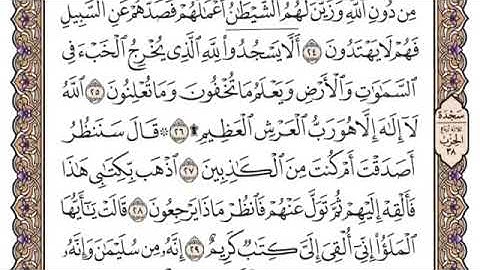 مِن دُونِ ٱللَّهِ وَزَيَّنَ لَهُمُ ٱلشَّيْطَٰنُ أَعْمَٰلَهُمْ فَصَدَّهُمْ عَنِ ٱلسَّبِيلِ
فَهُمْ لَا يَهْتَدُونَ ٢٤ أَلَّا يَسْجُدُوا۟ لِلَّهِ ٱلَّذِى يُخْرِجُ ٱلْخَبْءَ فِى
ٱلسَّمَٰوَٰتِ وَٱلْأَرْضِ وَيَعْلَمُ مَا تُخْفُونَ وَمَا تُعْلِنُونَ ٢٥ ٱللَّهُ
لَآ إِلَٰهَ إِلَّا هُوَ رَبُّ ٱلْعَرْشِ ٱلْعَظِيمِ ۩ ٢٦ ۞ قَالَ سَنَنظُرُ
أَصَدَقْتَ أَمْ كُنتَ مِنَ ٱلْكَٰذِبِينَ ٢٧ ٱذْهَب بِّكِتَٰبِى هَٰذَا
فَأَلْقِهْ إِلَيْهِمْ ثُمَّ تَوَلَّ عَنْهُمْ فَٱنظُرْ مَاذَا يَرْجِعُونَ ٢٨ قَالَتْ يَٰٓأَيُّهَا
ٱلْمَلَؤُا۟ إِنِّىٓ أُلْقِىَ إِلَىَّ كِتَٰبٌ كَرِيمٌ ٢٩ إِنَّهُۥ مِن سُلَيْمَٰنَ وَإِنَّهُۥ
سَجْدَة
الحِزْب
٣٨